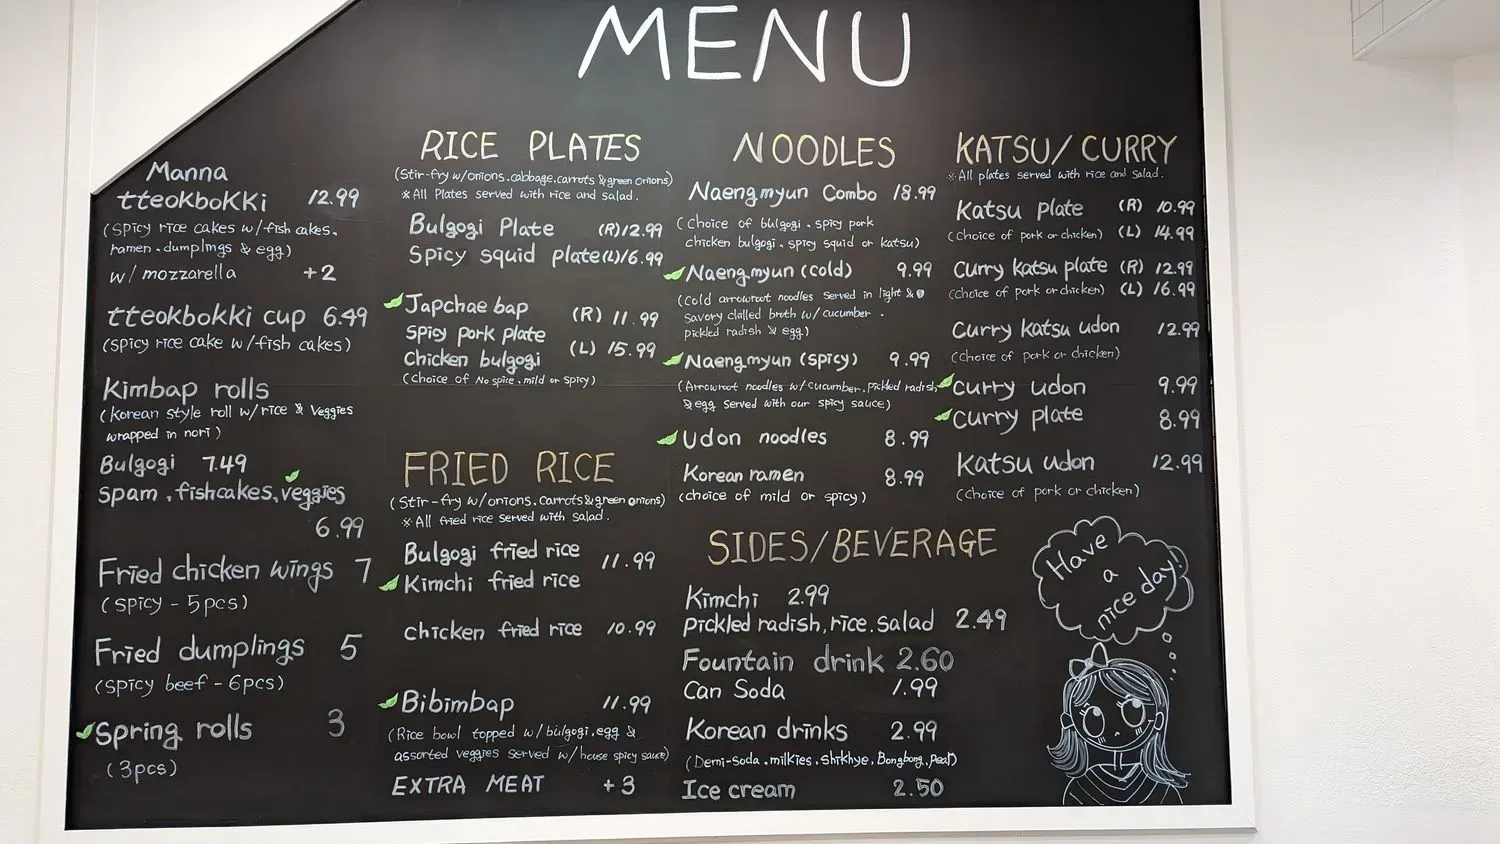 MENU
Manna
tteokbokki 12.99
(spicy rice cakes w/fish cakes.
ramen.dumplings & egg)
w/ mozzarella +2
tteokbokki cup 6.49
(spicy rice cake w/fish cakes)
Kimbap rolls
(Korean style roll w/rice & veggies
wrapped in nori)
Bulgogi 7.49
spam, fishcakes, veggies
6.99
Fried chicken wings 7
(spicy - 5pcs)
Fried dumplings 5
(spicy beef - 6pcs)
Spring rolls 3
(3pcs)
RICE PLATES
(Stir-fry w/onions.cabbage.carrots & green onions)
※All Plates served with rice and salad.
Bulgogi Plate (R)12.99
Spicy squid plate(L)16.99
Japchae bap
(R) 11.99
Spicy pork plate
(L) 15.99
Chicken bulgogi
(choice of No spice.mild or spicy)
FRIED RICE
(Stir-fry w/onions.carrots&green onions)
※All fried rice served with salad.
Bulgogi fried rice
11.99
Kimchi fried rice
chicken fried rice 10.99
Bibimbap 11.99
(Rice bowl topped w/bulgogi,egg &
assorted veggies served w/house spicy sauce)
EXTRA MEAT +3
NOODLES
Naengmyun Combo 18.99
(choice of bulgogi.spicy pork
chicken bulgogi.spicy squid or katsu)
Naengmyun (cold) 9.99
(cold arrowroot noodles served in light &
savory chilled broth w/ cucumber.
pickled radish & egg)
Naengmyun (spicy) 9.99
(Arrowroot noodles w/cucumber.pickled radish
& egg served with our spicy sauce)
Udon noodles 8.99
Korean ramen 8.99
(choice of mild or spicy)
SIDES/BEVERAGE
Kimchi 2.99
pickled radish, rice.salad 2.49
Fountain drink 2.60
Can Soda 1.99
Korean drinks 2.99
(Demi-soda.milkies.shikhye.Bongbong.Pear)
Ice cream 2.50
KATSU/CURRY
※All plates served with rice and salad.
Katsu plate (R) 10.99
(choice of pork or chicken) (L) 14.99
Curry katsu plate (R) 12.99
(choice of pork or chicken) (L) 16.99
Curry katsu udon 12.99
(choice of pork or chicken)
Curry udon 9.99
Curry plate 8.99
Katsu udon 12.99
(choice of pork or chicken)
Have
a
nice day!